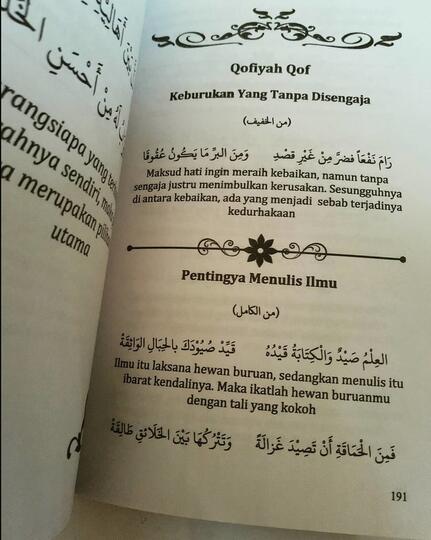 مِنْ أَحْسَنِ
utama
Qofiyah Qof
Keburukan Yang Tanpa Disengaja
(من الخفيف)
رَامَ نَفْعًا فَضَرَّ مِنْ غَيْرِ قَصْدٍ وَمِنَ البِرِّ مَا يَكُونُ عُقُوقًا
Maksud hati ingin meraih kebaikan, namun tanpa
sengaja justru menimbulkan kerusakan. Sesungguhnya
di antara kebaikan, ada yang menjadi sebab terjadinya
kedurhakaan
Pentingya Menulis Ilmu
(من الكامل)
العِلْمُ صَيْدٌ وَالْكِتَابَةُ قَيْدُهُ قَيِّدْ صُيُوْدَكَ بِالحِبَالِ الوَاثِقَةْ
Ilmu itu laksana hewan buruan, sedangkan menulis itu
ibarat kendalinya. Maka ikatlah hewan buruanmu
dengan tali yang kokoh
فَمِنَ الْحَمَاقَةِ أَنْ تَصِيْدَ غَزَالَةً وَتَتْرُكَهَا بَيْنَ الخَلَائِقِ طَالِقَةْ
191